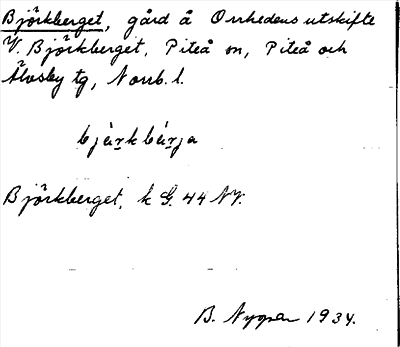 Björkberget, gård å Orrhedens utskifte
V. Björkberget, Piteå sn, Piteå och
Älvsby tg, Norrb. l.
bjärkbärja
Björkberget, k G. 44 NV.
B. Nygren 1934.